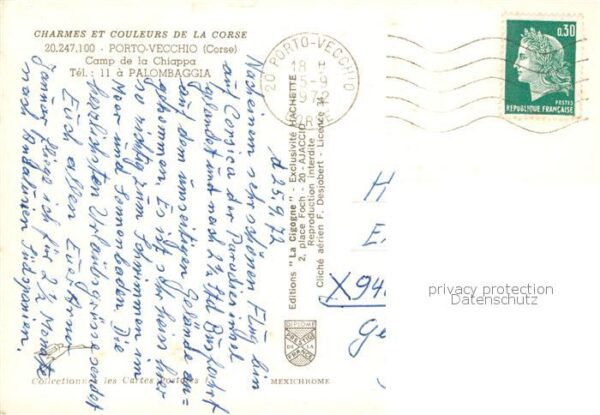 CHARMES ET COULEURS DE LA CORSE
20.247.100 - PORTO-VECCHIO (Corse)
Camp de la Chiappa
Tél. : 11 à PALOMBAGGIA
d 25.9.72
Nach einem sehr schönen Flug bin
auf Corsica der Paradiesinsel
gelandet und nach 2½ Std Busfahrt
auf dem
gekommen. Es ist sehr fein hier
So richtig zum Schwimmen im
Meer und Sonnenbaden. Die
herzlichsten Urlaubsgrüsse sendet
Euch allen Eure Erna
Januar fliege ich für 2½ Monate
nach Südspanien.
Editions "La Cigogne" - Exclusivité HACHETTE
2, place Foch - 20-AJACCIO
Reproduction interdite
Cliché aérien F. Desjobert - Licence 34
20 PORTO-VECCHIO
18 H
5-9
1972
CORSE
0,30
POSTES
REPUBLIQUE FRANÇAISE
H
E
X94
Ge
privacy protection
Datenschutz
DIPLOME
PRESTIGE
DE LA
FRANCE
Collectionnez les Cartes Postales
MEXICHROME